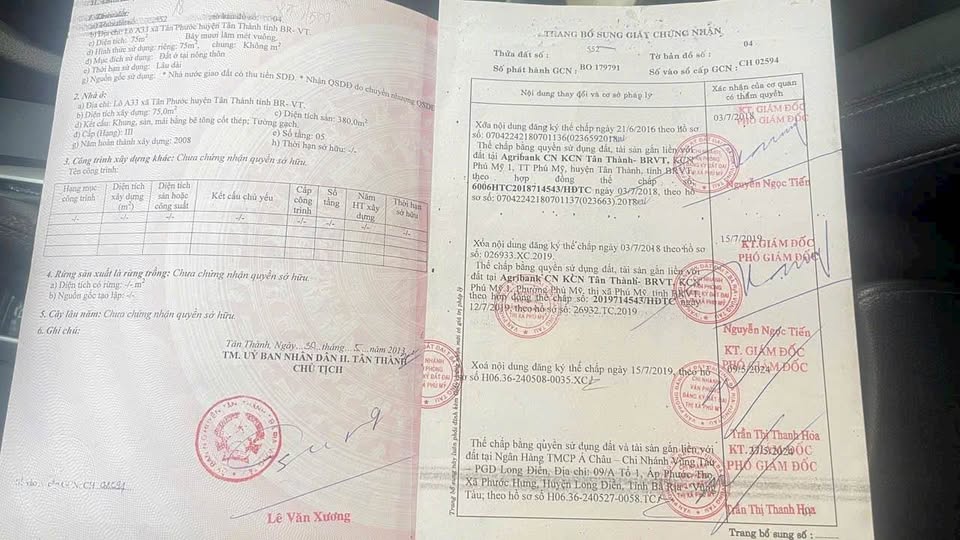 1. Thửa đất:
a) Thửa đất số: 552 tờ bản đồ số: 04
b) Địa chỉ: Lô A33 xã Tân Phước huyện Tân Thành tỉnh BR- VT.
c) Diện tích: 75m² Bảy mươi lăm mét vuông.
d) Hình thức sử dụng: riêng: 75m², chung: Không m²
đ) Mục đích sử dụng: Đất ở tại nông thôn
e) Thời hạn sử dụng: Lâu dài
g) Nguồn gốc sử dụng: * Nhà nước giao đất có thu tiền SDĐ. * Nhận QSDĐ do chuyển nhượng QSDĐ
2. Nhà ở:
a) Địa chỉ: Lô A33 xã Tân Phước huyện Tân Thành tỉnh BR- VT.
b) Diện tích xây dựng: 75,0m² c) Diện tích sàn: 380,0m²
d) Kết cấu: Khung, sàn, mái bằng bê tông cốt thép; Tường gạch.
đ) Cấp (Hạng): III e) Số tầng: 05
g) Năm hoàn thành xây dựng: 2008 h) Thời hạn sở hữu: -/-
3. Công trình xây dựng khác: Chưa chứng nhận quyền sở hữu.
Tên công trình:
Hạng mục công trình
Diện tích xây dựng (m²)
Diện tích sàn hoặc công suất
Kết cấu chủ yếu
Cấp công trình
Số tầng
Năm HT xây dựng
Thời hạn sở hữu
-/- -/- -/- -/- -/- -/- -/- -/-
4. Rừng sản xuất là rừng trồng: Chưa chứng nhận quyền sở hữu.
a) Diện tích có rừng: -/- m²
b) Nguồn gốc tạo lập: -/-
5. Cây lâu năm: Chưa chứng nhận quyền sở hữu.
6. Ghi chú:
Tân Thành, Ngày 30 tháng 5 năm 2013
TM. UỶ BAN NHÂN DÂN H. TÂN THÀNH
CHỦ TỊCH
Lê Văn Xương
TRANG BỔ SUNG GIẤY CHỨNG NHẬN
Thửa đất số: 552 Tờ bản đồ số: 04
Số phát hành GCN: BO 179791 Số vào sổ cấp GCN: CH 02594
Nội dung thay đổi và cơ sở pháp lý
Xác nhận của cơ quan
có thẩm quyền
Xóa nội dung đăng ký thế chấp ngày 21/6/2016 theo hồ sơ
số: 070422421807011​36(023659)2018
Thế chấp bằng quyền sử dụng đất, tài sản gắn liền với
đất tại Agribank CN KCN Tân Thành- BRVT, KCN
Phú Mỹ 1, TT Phú Mỹ, huyện Tân Thành, tỉnh BRVT,
theo hợp đồng thế chấp số:
6006HTC2018714543/HĐTC ngày 03/7/2018, theo hồ
sơ số: 07042242180701137(023663).2018
03/7/2018
KT. GIÁM ĐỐC
PHÓ GIÁM ĐỐC
Nguyễn Ngọc Tiến
Xóa nội dung đăng ký thế chấp ngày 03/7/2018 theo hồ sơ
số: 026933.XC.2019.
Thế chấp bằng quyền sử dụng đất, tài sản gắn liền với
đất tại Agribank CN KCN Tân Thành- BRVT, KCN
Phú Mỹ 1, Phường Phú Mỹ, thị xã Phú Mỹ, tỉnh BRVT,
theo hợp đồng thế chấp số: 2019714543/HĐTC ngày
12/7/2019; theo hồ sơ số: 26932.TC.2019
15/7/2019
KT.GIÁM ĐỐC
PHÓ GIÁM ĐỐC
Nguyễn Ngọc Tiến
Xoá nội dung đăng ký thế chấp ngày 15/7/2019, theo hồ
sơ số H06.36-240508-0035.XC
KT. GIÁM ĐỐC
PHÓ GIÁM ĐỐC
09/5/2024
Trần Thị Thanh Hóa
Thế chấp bằng quyền sử dụng đất và tài sản gắn liền với
đất tại Ngân Hàng TMCP Á Châu – Chi Nhánh Vũng Tàu
– PGD Long Điền, Địa chỉ: 09/A Tổ 1, Ấp Phước Thọ,
Xã Phước Hưng, Huyện Long Điền, Tỉnh Bà Rịa – Vũng
Tàu; theo hồ sơ số H06.36-240527-0058.TC
PHÓ GIÁM ĐỐC
Trần Thị Thanh Hoa
Trang bổ sung số: